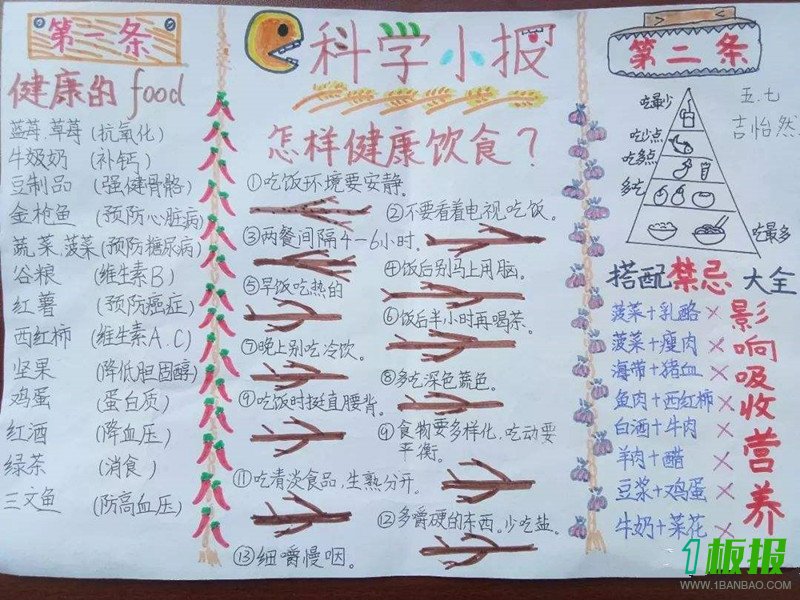 第一条
健康的food
蓝莓.草莓(抗氧化)
牛奶奶 (补钙)
豆制品 (强健骨骼)
金枪鱼 (预防心脏病)
蔬菜.菠菜(预防糖尿病)
谷粮 (维生素B)
红薯 (预防癌症)
西红柿 (维生素A.C)
坚果 (降低胆固醇)
鸡蛋 (蛋白质)
红酒 (降血压)
绿茶 (消食)
三文鱼 (防高血压)
科学小报
怎样健康饮食?
①吃饭环境要安静.
②不要看着电视吃饭。
③两餐间隔4-6小时.
④饭后别马上用脑。
⑤早饭吃热的
⑥饭后半小时再喝茶。
⑦晚上别吃冷饮。
⑧多吃深色蔬色。
⑨吃饭时挺直腰背。
④食物要多样化,吃动要
平衡。
⑪吃清淡食品,生熟分开.
⑫多嚼硬的东西。少吃盐。
⑬细嚼慢咽。
第二条
五.七
吉怡然
吃最少
吃少点
吃多点
多吃
吃最多
搭配禁忌大全
菠菜+乳酪×
菠菜+瘦肉×
海带+猪血×
鱼肉+西红柿×
白酒+牛肉×
羊肉+醋×
豆浆+鸡蛋×
牛奶+菜花×
影响吸收营养
1板报
WWW.1BANBAO.COM